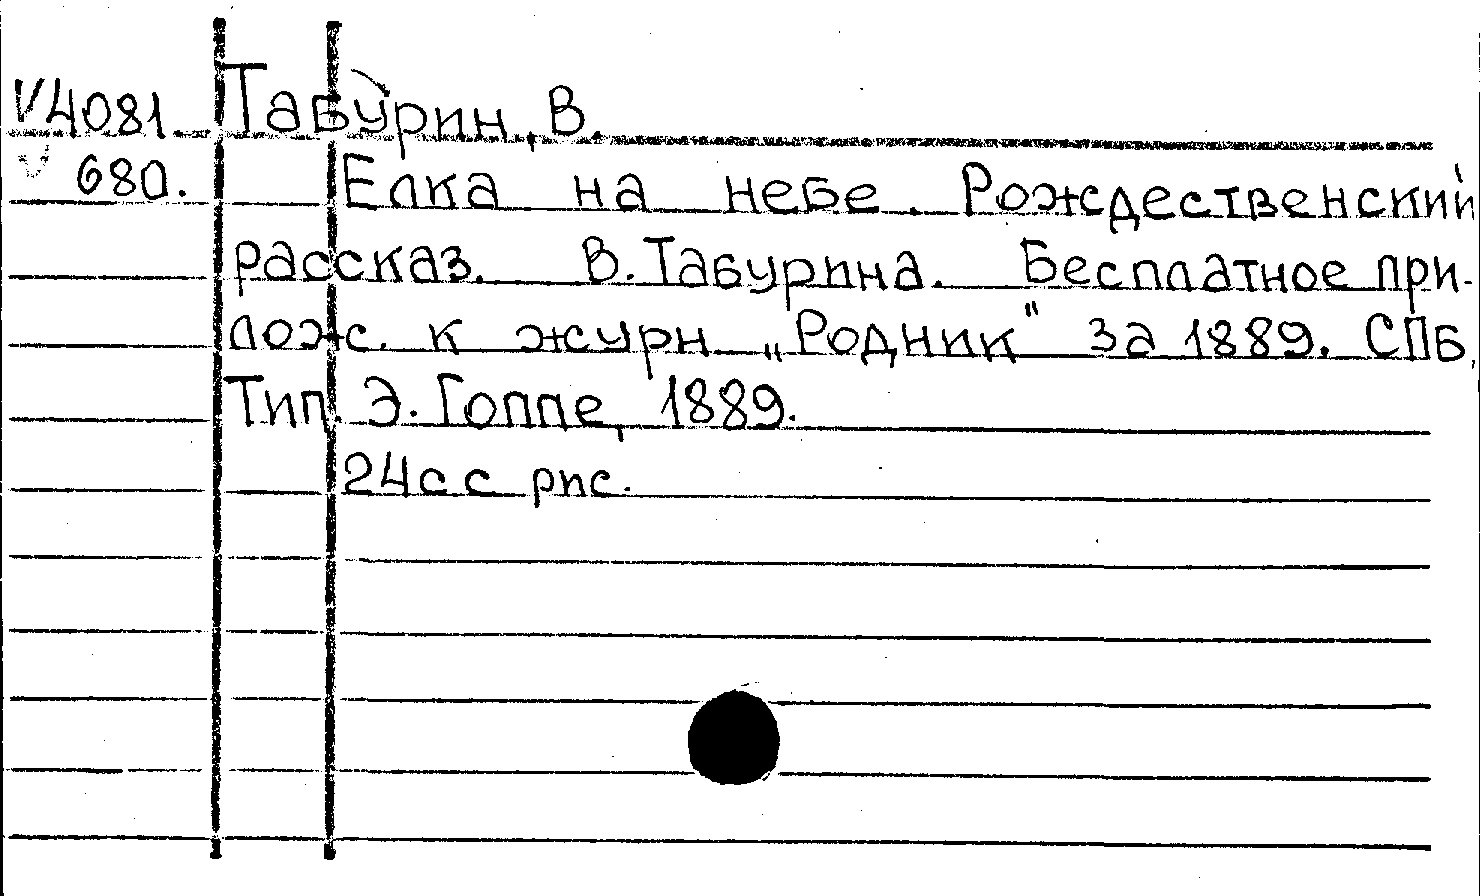 V4081 Табурин, В.
680. Елка на небе. Рождественский
рассказ. В. Табурина. Бесплатное при-
лож. к журн „Родник" за 1889. СПБ,
Тип. Э. Гоппе, 1889.
24с с рис.